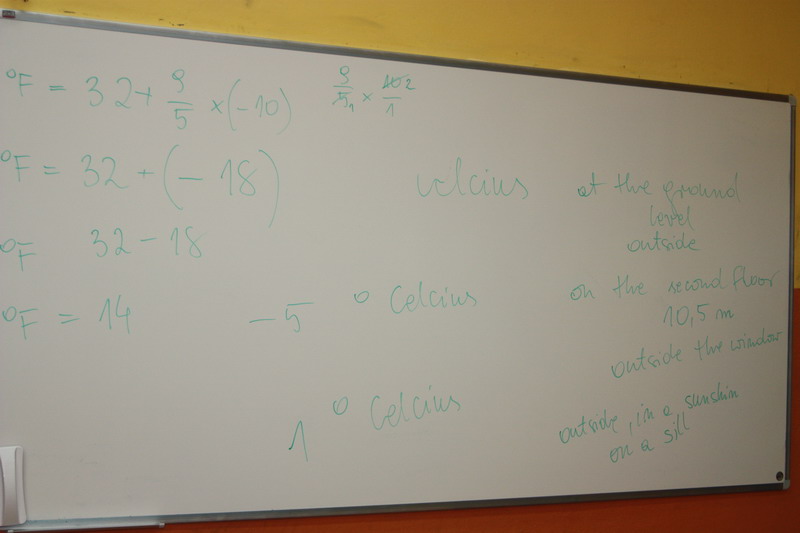 °F = 32 + 9/5 × (-10) 9/5 1 × 10 2/1
°F = 32 + (-18)
celcius at the ground
level
°F 32 - 18 outside
°F = 14 -5 ° Celcius on the second floor
10,5 m
outside the window
1 ° Celcius outside, in a sunshin
on a sill